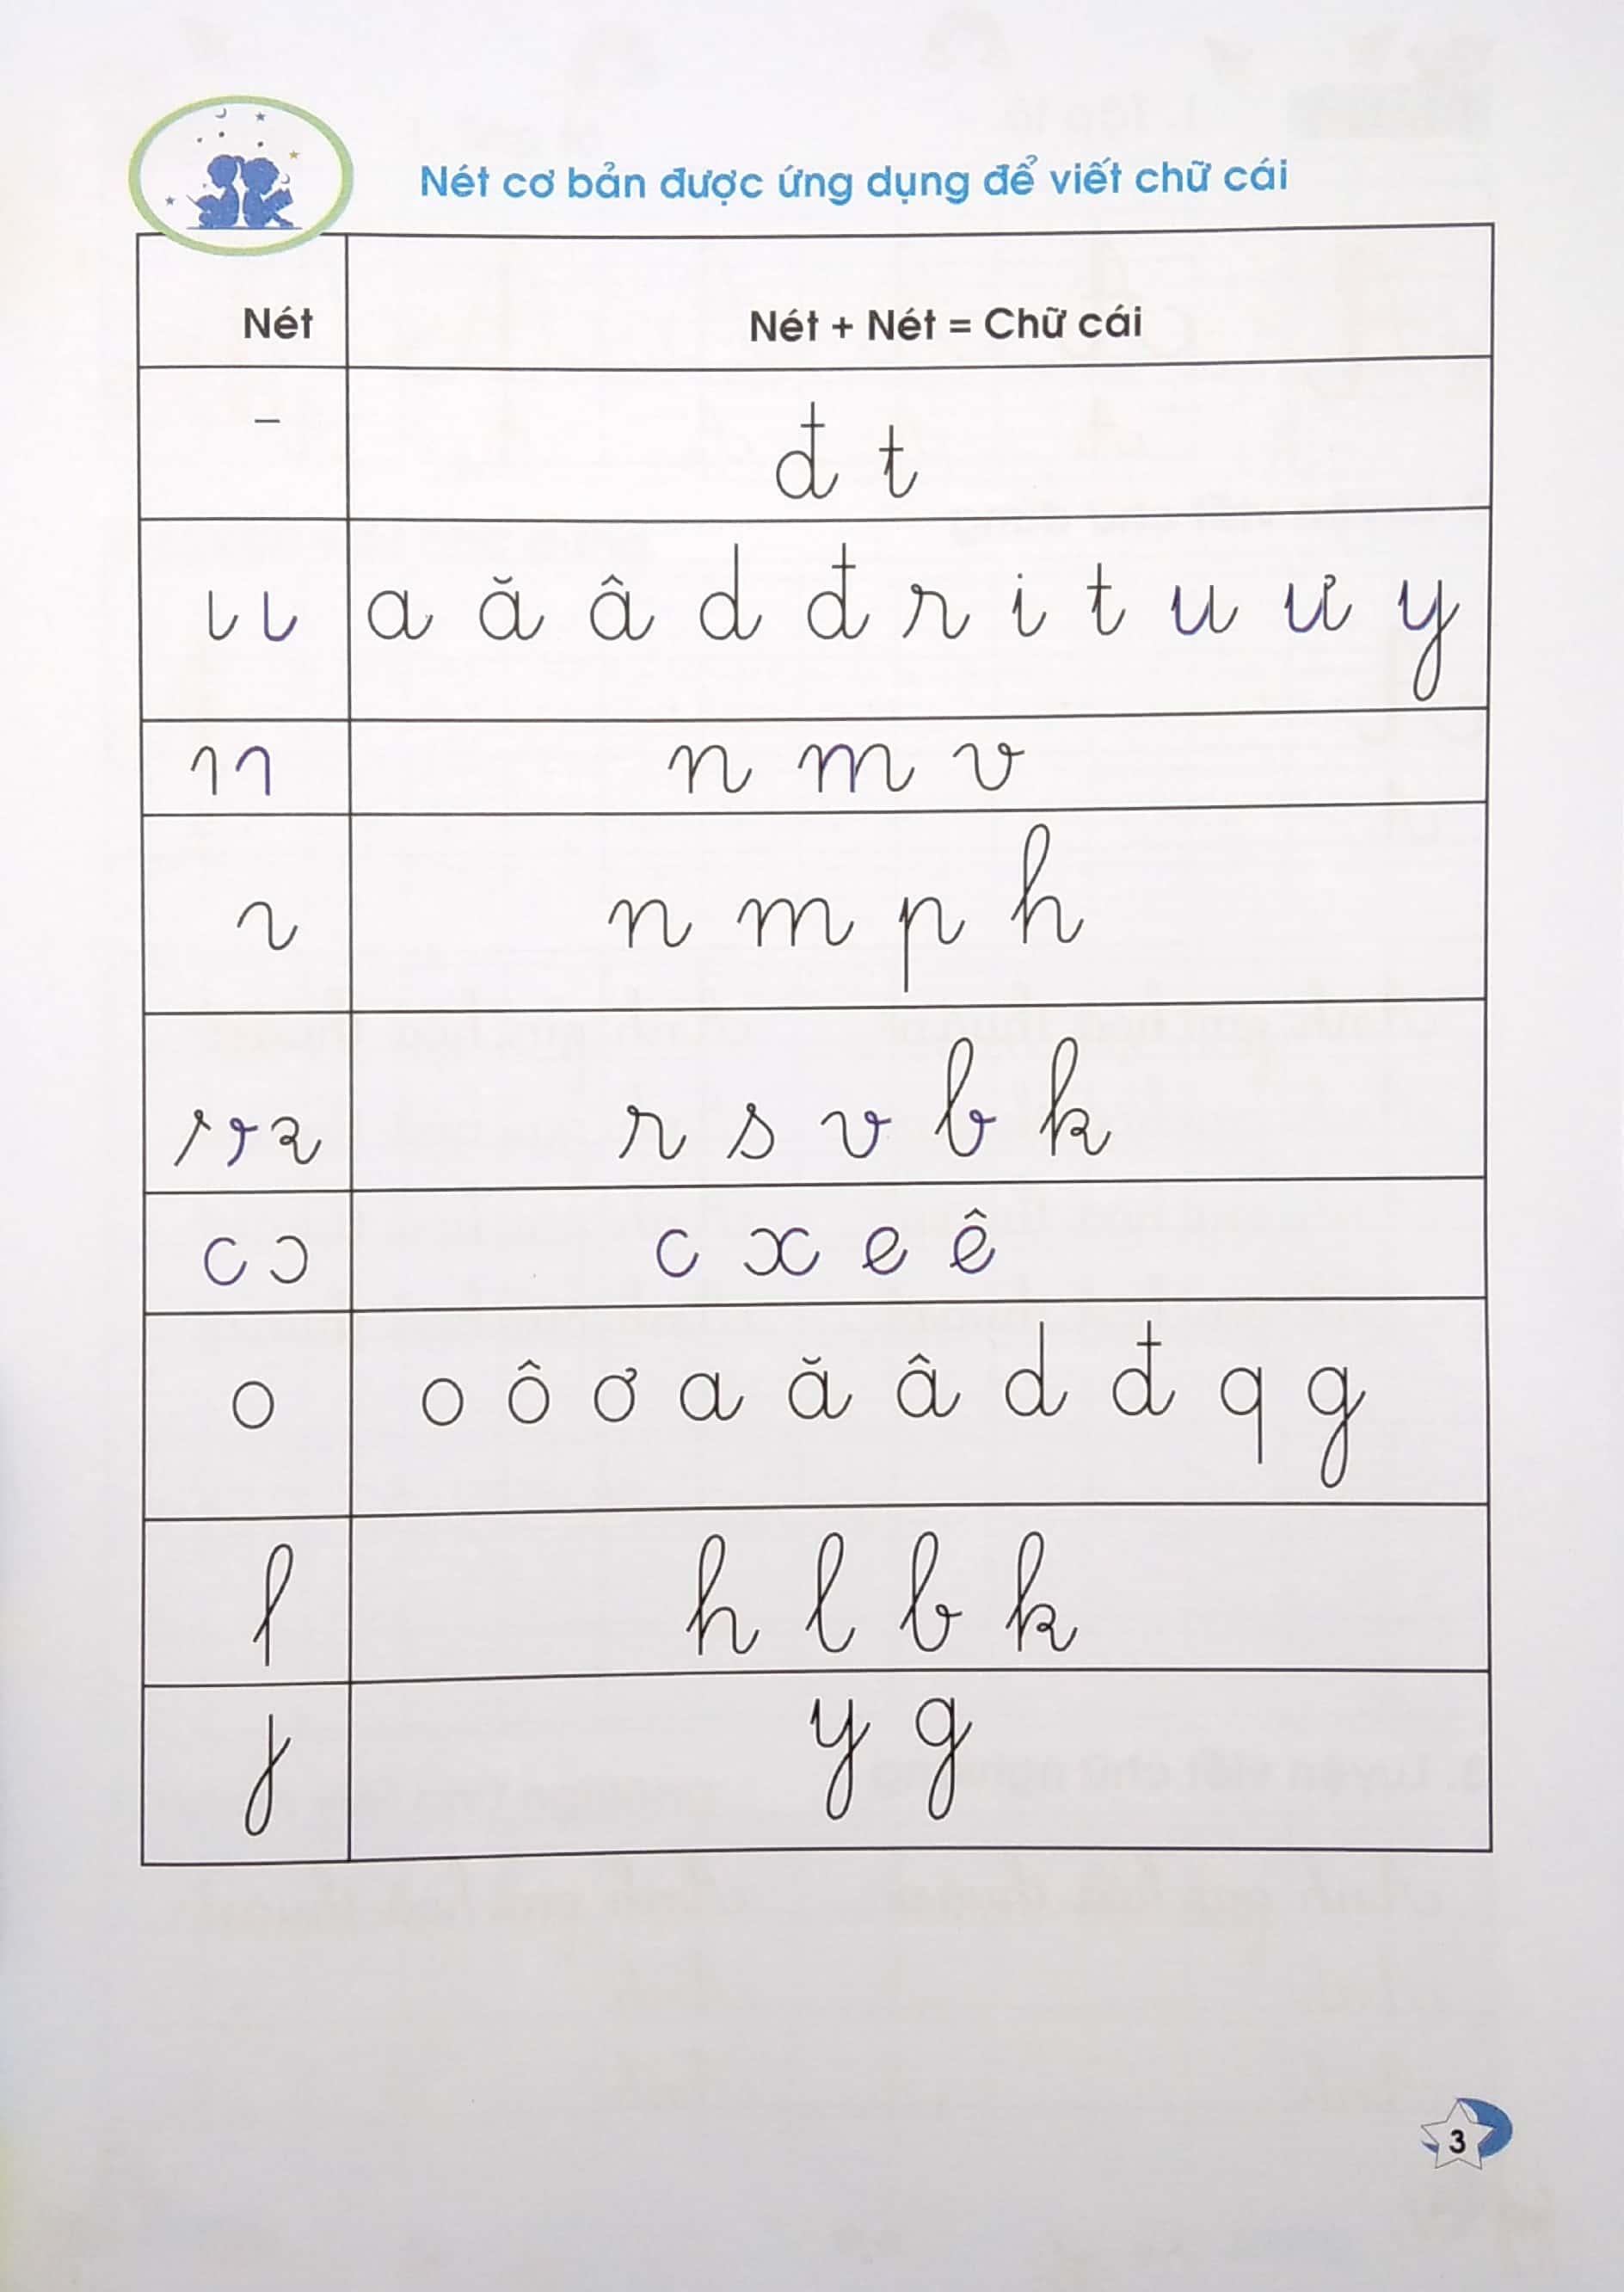 Nét cơ bản được ứng dụng để viết chữ cái
Nét Nét + Nét = Chữ cái
–
đ t
a ă â d đ r i t u ư y
n m v
n m p h
r s v b k
c x e ê
o o ô ơ a ă â d đ q g
h l b k
y g
3